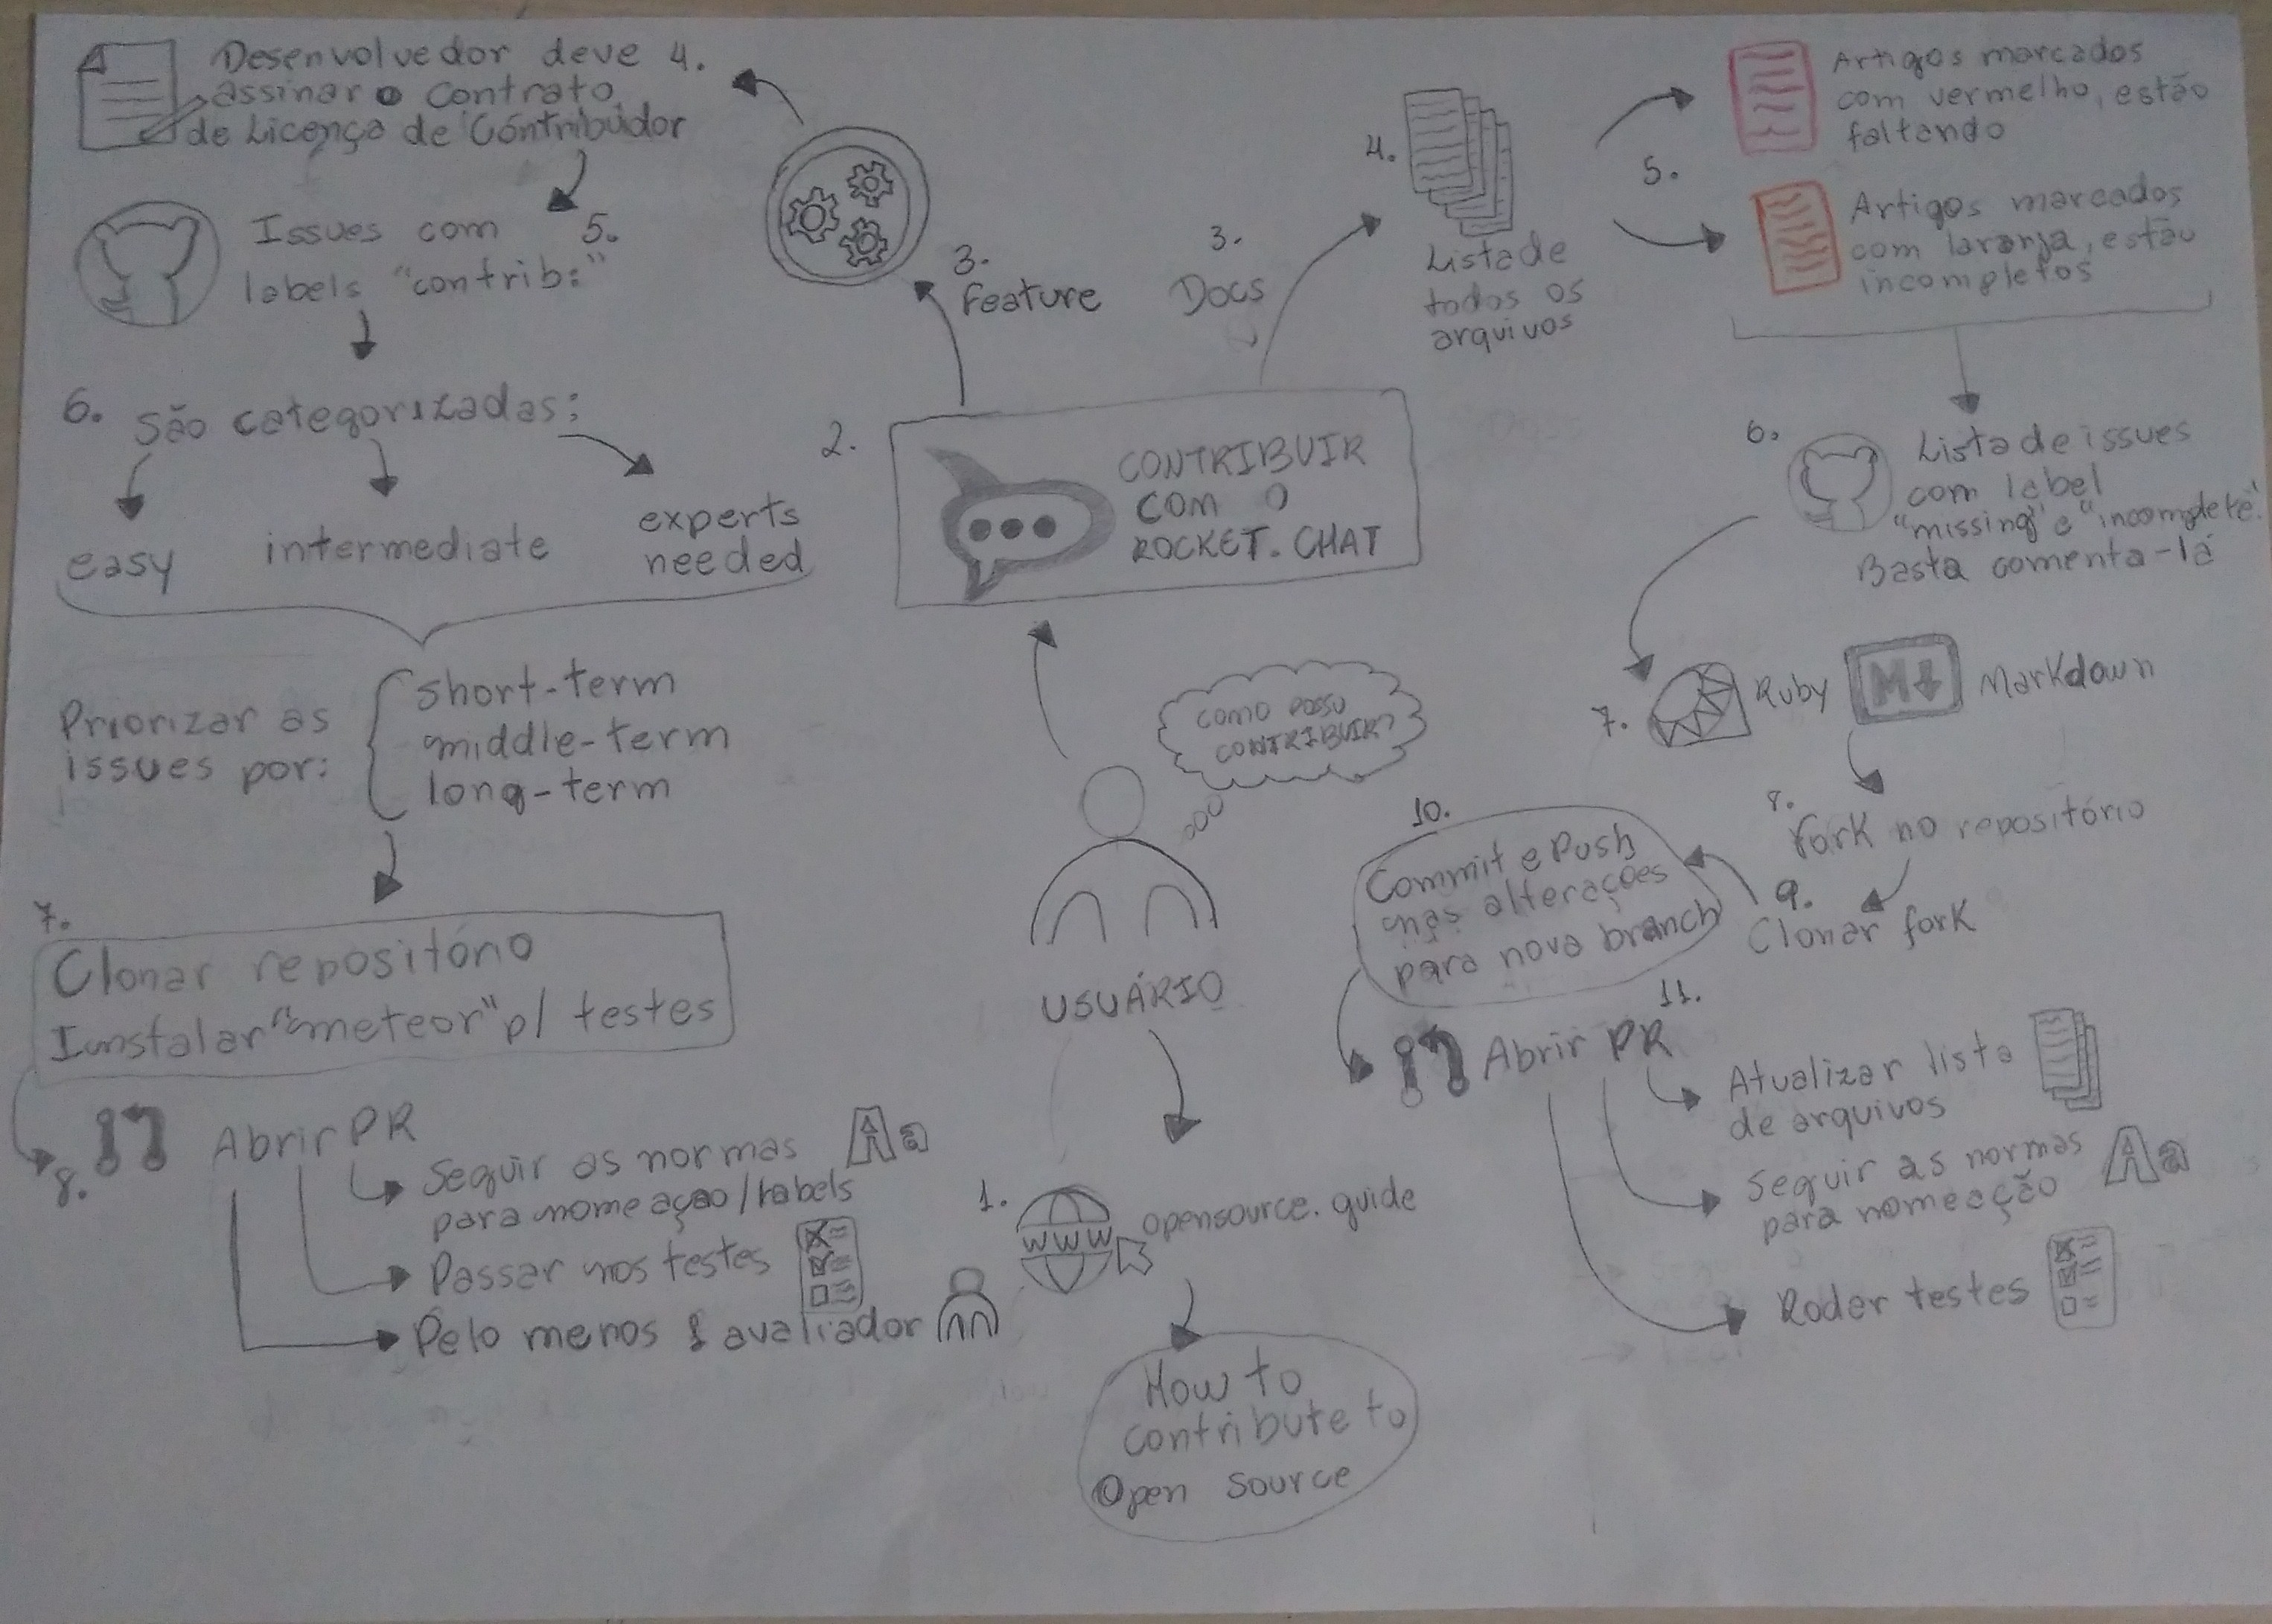 Desenvolvedor deve 4.
assinar o contrato
de Licença de Contribuidor
Issues com 5.
labels "contrib:"
6. São categorizadas:
easy
intermediate
experts
needed
Priorizar as
issues por:
short-term
middle-term
long-term
7.
Clonar repositório
Instalar "meteor" p/ testes
8.
Abrir PR
Seguir as normas Aa
para nomeação/labels
Passar nos testes
Pelo menos 1 avaliador
3.
Feature
3.
Docs
2.
CONTRIBUIR
COM O
ROCKET.CHAT
COMO POSSO
CONTRIBUIR?
USUÁRIO
1.
WWW
opensource.guide
How to
contribute to
Open Source
4.
Lista de
todos os
arquivos
5.
Artigos marcados
com vermelho, estão
faltando
Artigos marcados
com laranja, estão
incompletos
6.
Lista de issues
com label
"missing" e "incomplete".
Basta comenta-lá
7.
Ruby
M
Markdown
8.
Fork no repositório
9.
Clonar fork
10.
Commit e Push
nas alterações
para nova branch
11.
Abrir PR
Atualizar lista
de arquivos
Seguir as normas Aa
para nomeação
Roder testes